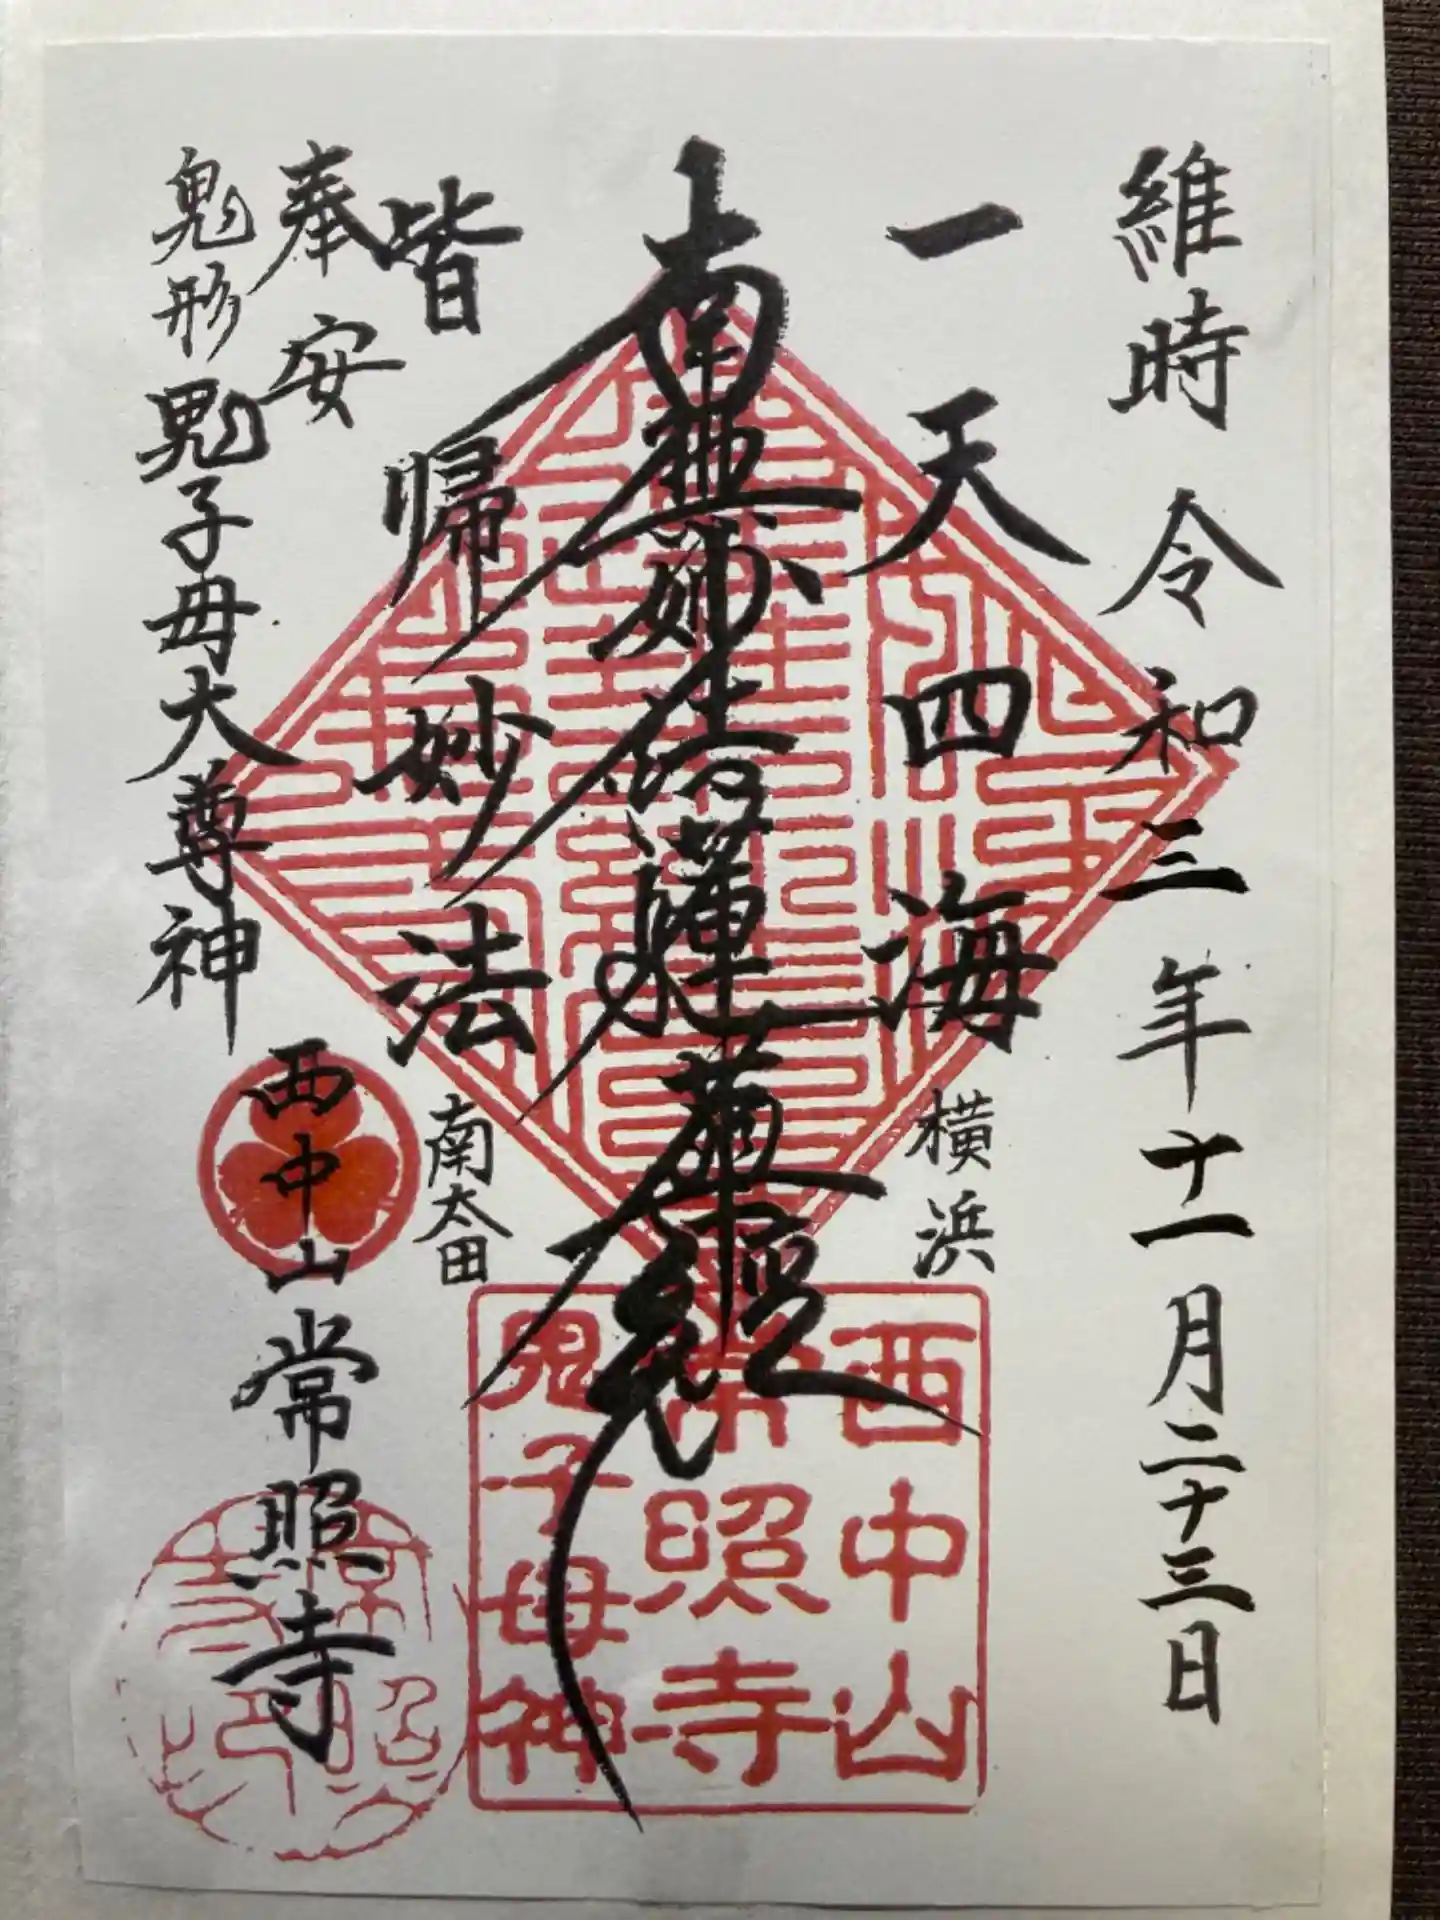 維時令和三年十一月二十三日
一天四海
横浜
南無妙法蓮華経
皆帰妙法
南太田
奉安
鬼形鬼子母大尊神
西中山常照寺
西中山
常照寺
鬼子母神